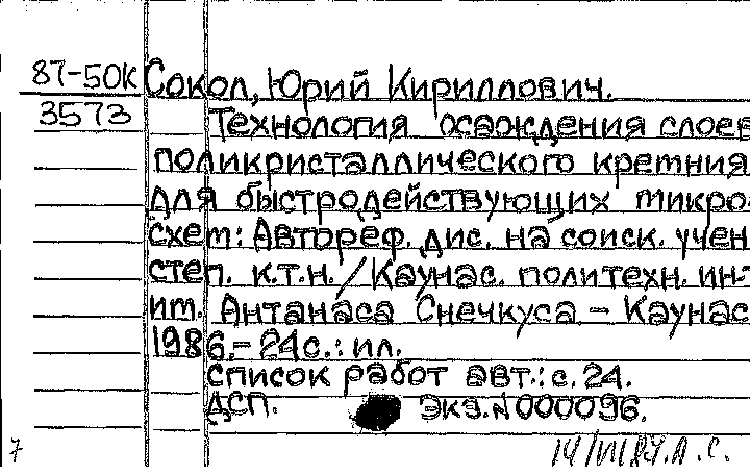 87-50К Сокол, Юрий Кириллович.
3573 Технология осаждения слоев
поликристаллического кремния
для быстродействующих микро-
схем: Автореф. дис. на соиск. учен
степ. к.т.н. / Каунас. политехн. ин-т
им. Антанаса Снечкуса – Каунас
1986.– 24с.: ил.
список работ авт.: с. 24.
ДСП. Экз. N 000096.
7